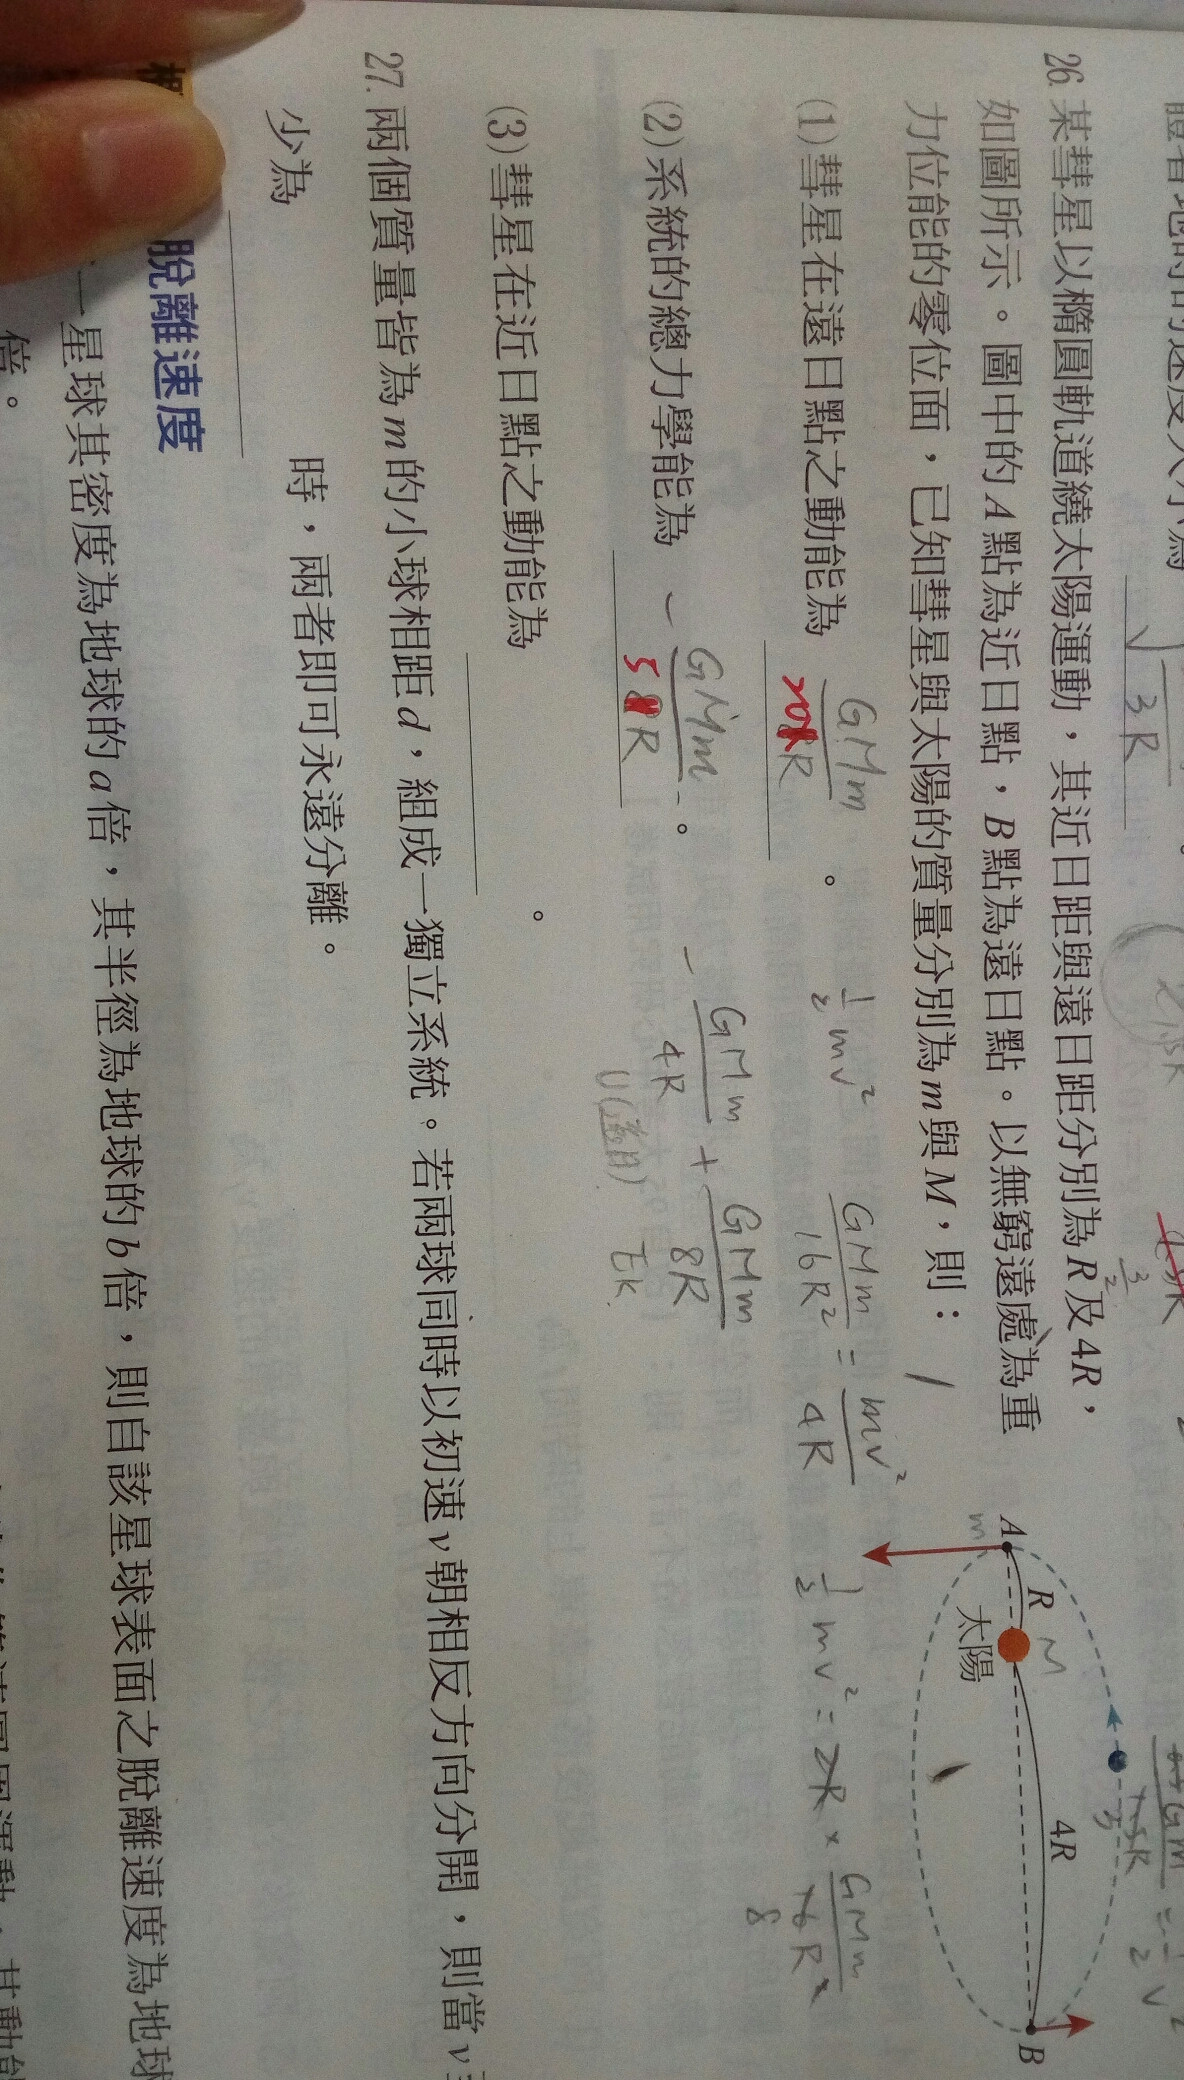 體着地時的速度大小為
√3R
26.某彗星以橢圓軌道繞太陽運動，其近日距與遠日距分別為R及4R，
如圖所示。圖中的A點為近日點，B點為遠日點。以無窮遠處為重
力位能的零位面，已知彗星與太陽的質量分別為m與M，則：
A
R
太陽
4R
B
m
M
(1)彗星在遠日點之動能為 GMm/20R 。
1/2 mv² GMm/16R² = mv²/4R 1/2 mv² = 2R × GMm/16R² 8
(2)系統的總力學能為 -GMm/5R 。
-GMm/4R + GMm/8R
U(遠日) Ek
(3)彗星在近日點之動能為 。
27.兩個質量皆為m的小球相距d，組成一獨立系統。若兩球同時以初速v朝相反方向分開，則當v至
少為 時，兩者即可永遠分離。
脫離速度
一星球其密度為地球的a倍，其半徑為地球的b倍，則自該星球表面之脫離速度為地球
倍。